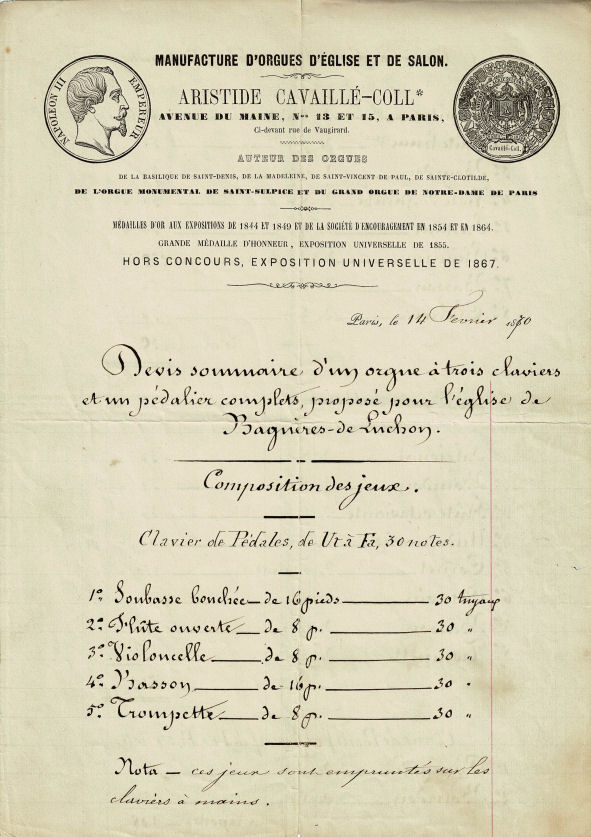 NAPOLEON III EMPEREUR
MANUFACTURE D'ORGUES D'ÉGLISE ET DE SALON.
ARISTIDE CAVAILLÉ-COLL*
AVENUE DU MAINE, Nos 13 ET 15, A PARIS,
Ci-devant rue de Vaugirard.
AUTEUR DES ORGUES
DE LA BASILIQUE DE SAINT-DENIS, DE LA MADELEINE, DE SAINT-VINCENT DE PAUL, DE SAINTE-CLOTILDE,
DE L'ORGUE MONUMENTAL DE SAINT-SULPICE ET DU GRAND ORGUE DE NOTRE-DAME DE PARIS
Cavaillé-Coll.
MÉDAILLES D'OR AUX EXPOSITIONS DE 1844 ET 1849 ET DE LA SOCIÉTÉ D'ENCOURAGEMENT EN 1854 ET EN 1864.
GRANDE MÉDAILLE D'HONNEUR, EXPOSITION UNIVERSELLE DE 1855.
HORS CONCOURS, EXPOSITION UNIVERSELLE DE 1867.
Paris, le 14 Fevrier 1870
Devis sommaire d'un orgue à trois claviers
et un pédalier complets, proposé pour l'église de
Bagnères-de Luchon.
Composition des jeux.
Clavier de Pédales, de Ut à Fa, 30 notes.
1º Soubasse bouchée — de 16 pieds — 30 tuyaux
2º Flûte ouverte — de 8 p. — 30 "
3º Violoncelle — de 8 p. — 30 "
4º Basson — de 16 p. — 30 "
5º Trompette — de 8 p. — 30 "
Nota — ces jeux sont empruntés sur les
claviers à mains.